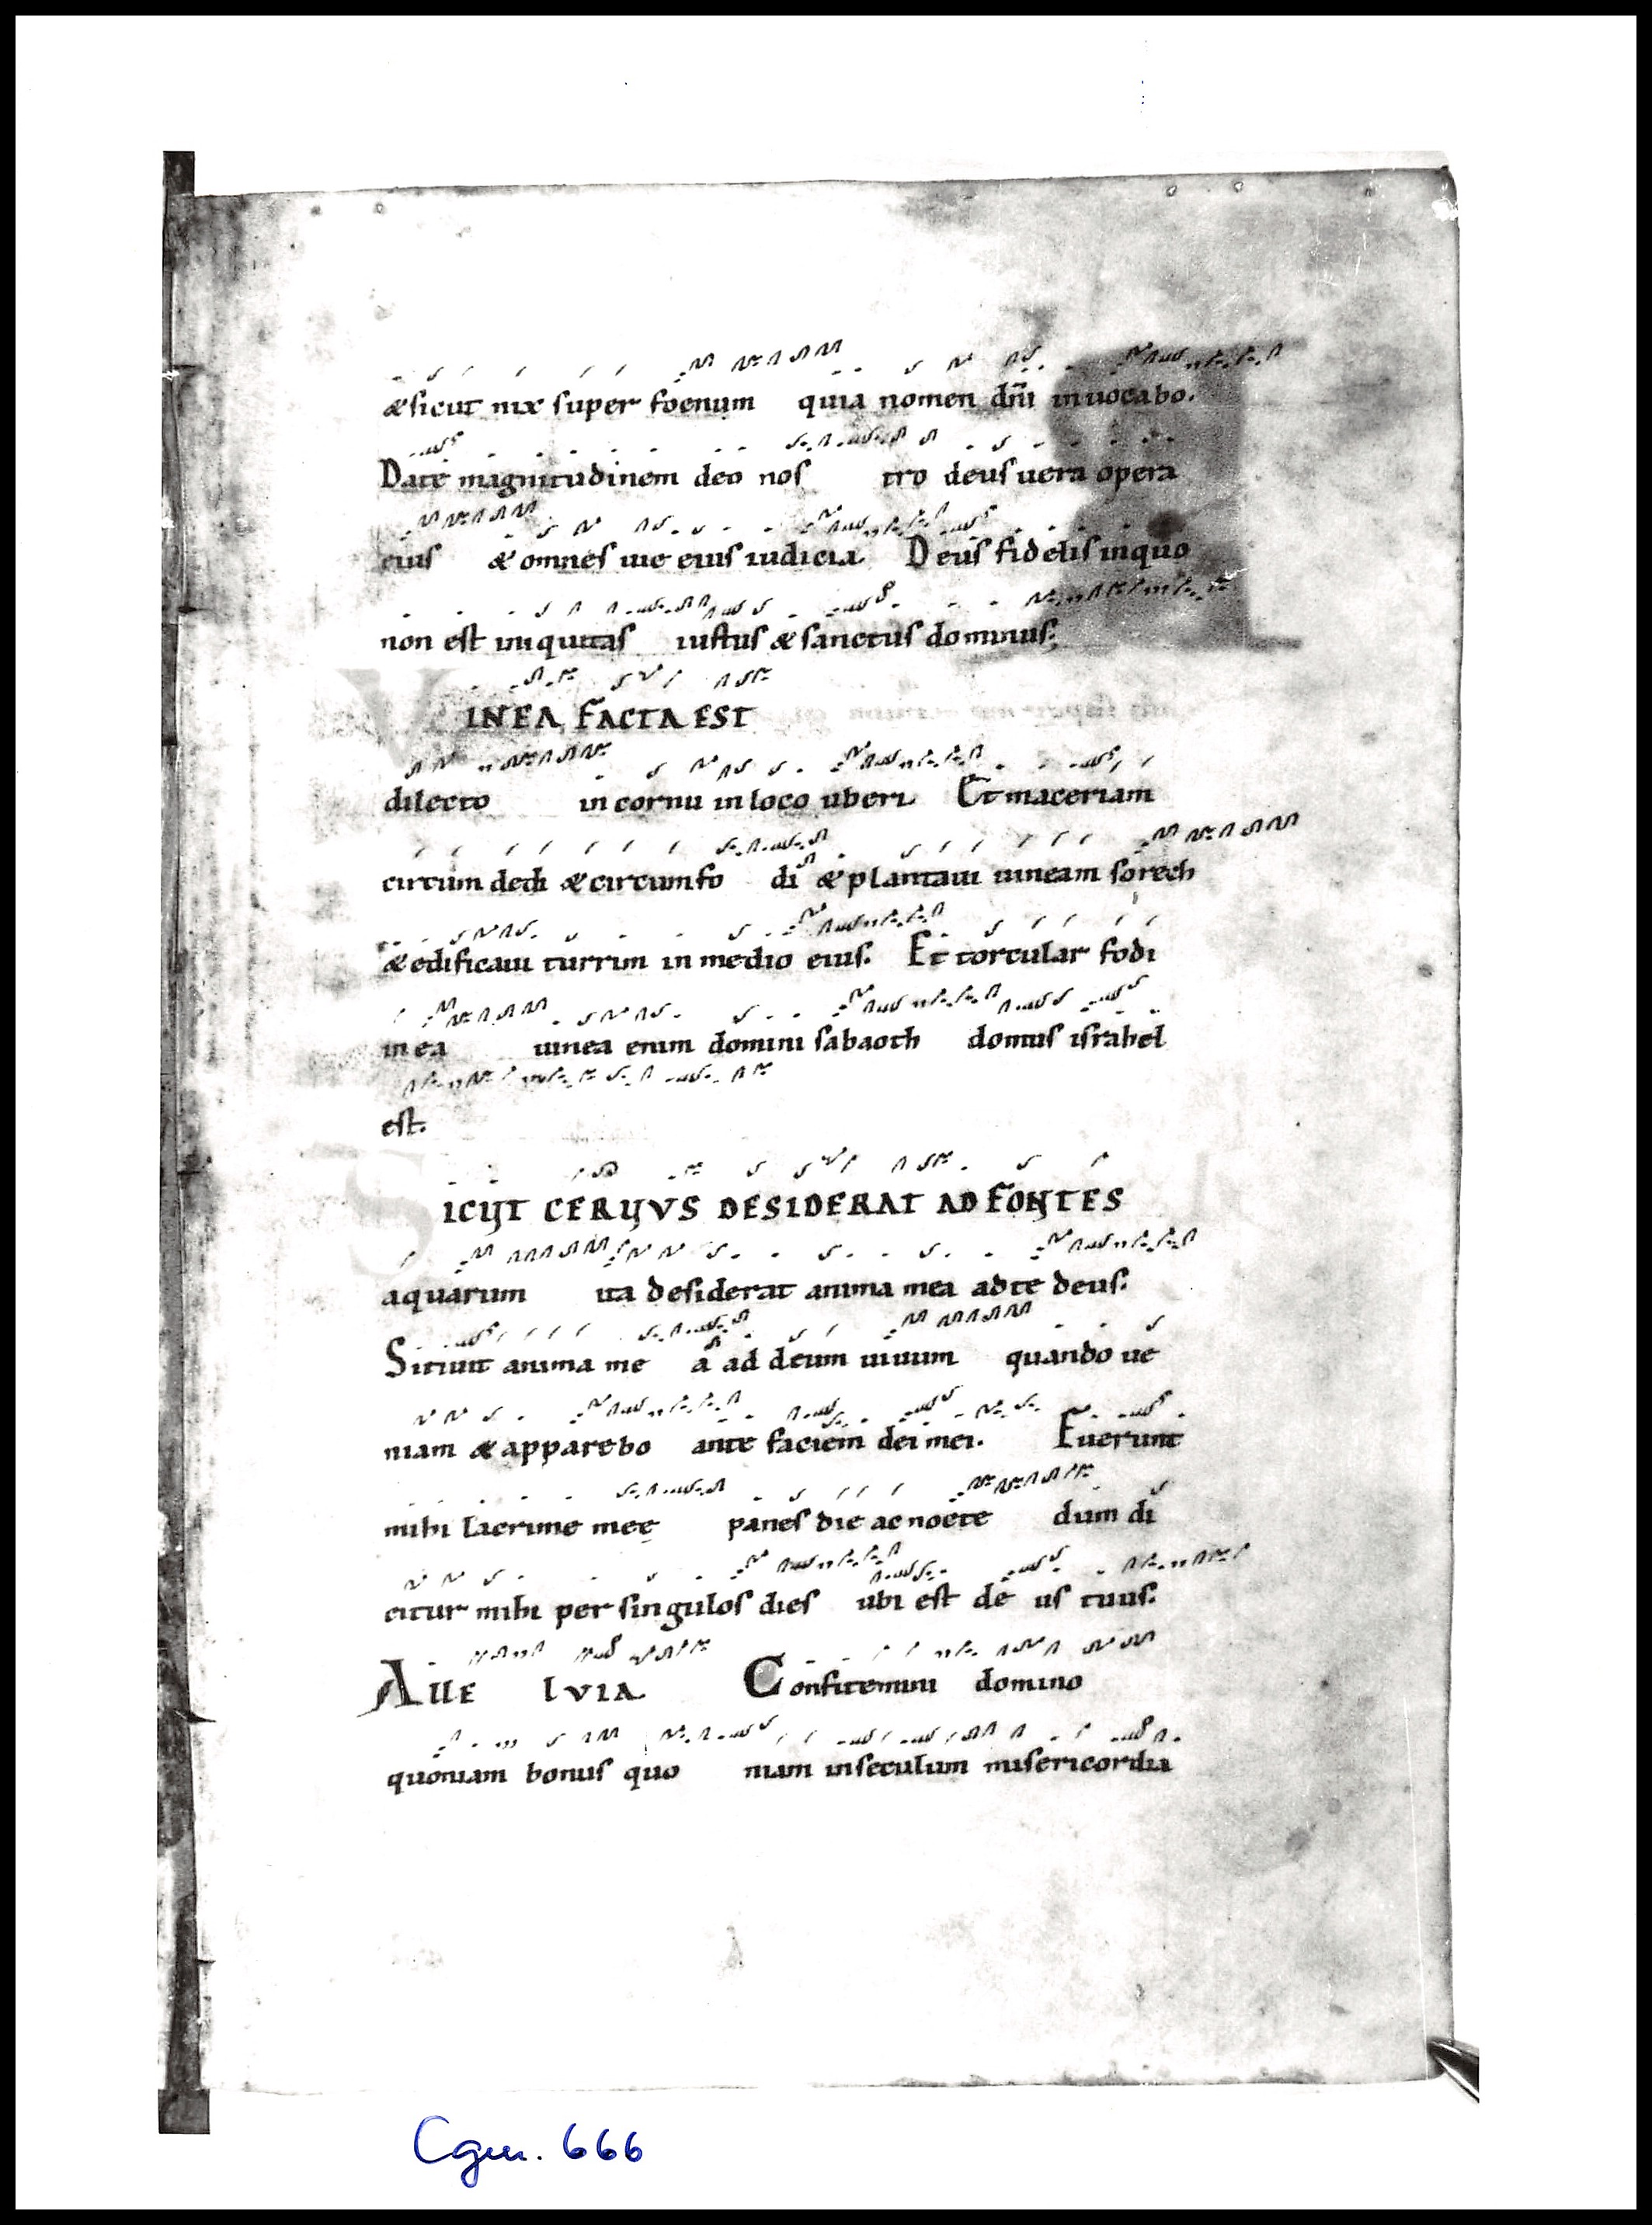 &sicut nix super foenum quia nomen dñi inuocabo.
Date magnitudinem deo nos tro deus uera opera
eius & omnes uie eius iudicia. Deus fidelis in quo
non est iniquitas iustus & sanctus dominus;
VINEA FACTA EST
dilecto in cornu in loco uberi. Et maceriam
circum dedi & circumfo di & plantaui uineam sorech
& edificaui turrim in medio eius. Et torcular fodi
in ea uinea enim domini sabaoth domus israhel
est.
SICVT CERVVS DESIDERAT AD FONTES
aquarum ita desiderat anima mea ad te deus.
Sitiuit anima me a ad deum uiuum quando ue
niam & apparebo ante faciem dei mei. Fuerunt
mihi lacrime meę panes die ac nocte dum di
citur mihi per singulos dies ubi est de us tuus.
Alle lVIA. Confitemini domino
quoniam bonus quo niam in seculum misericordia
Cgm. 666